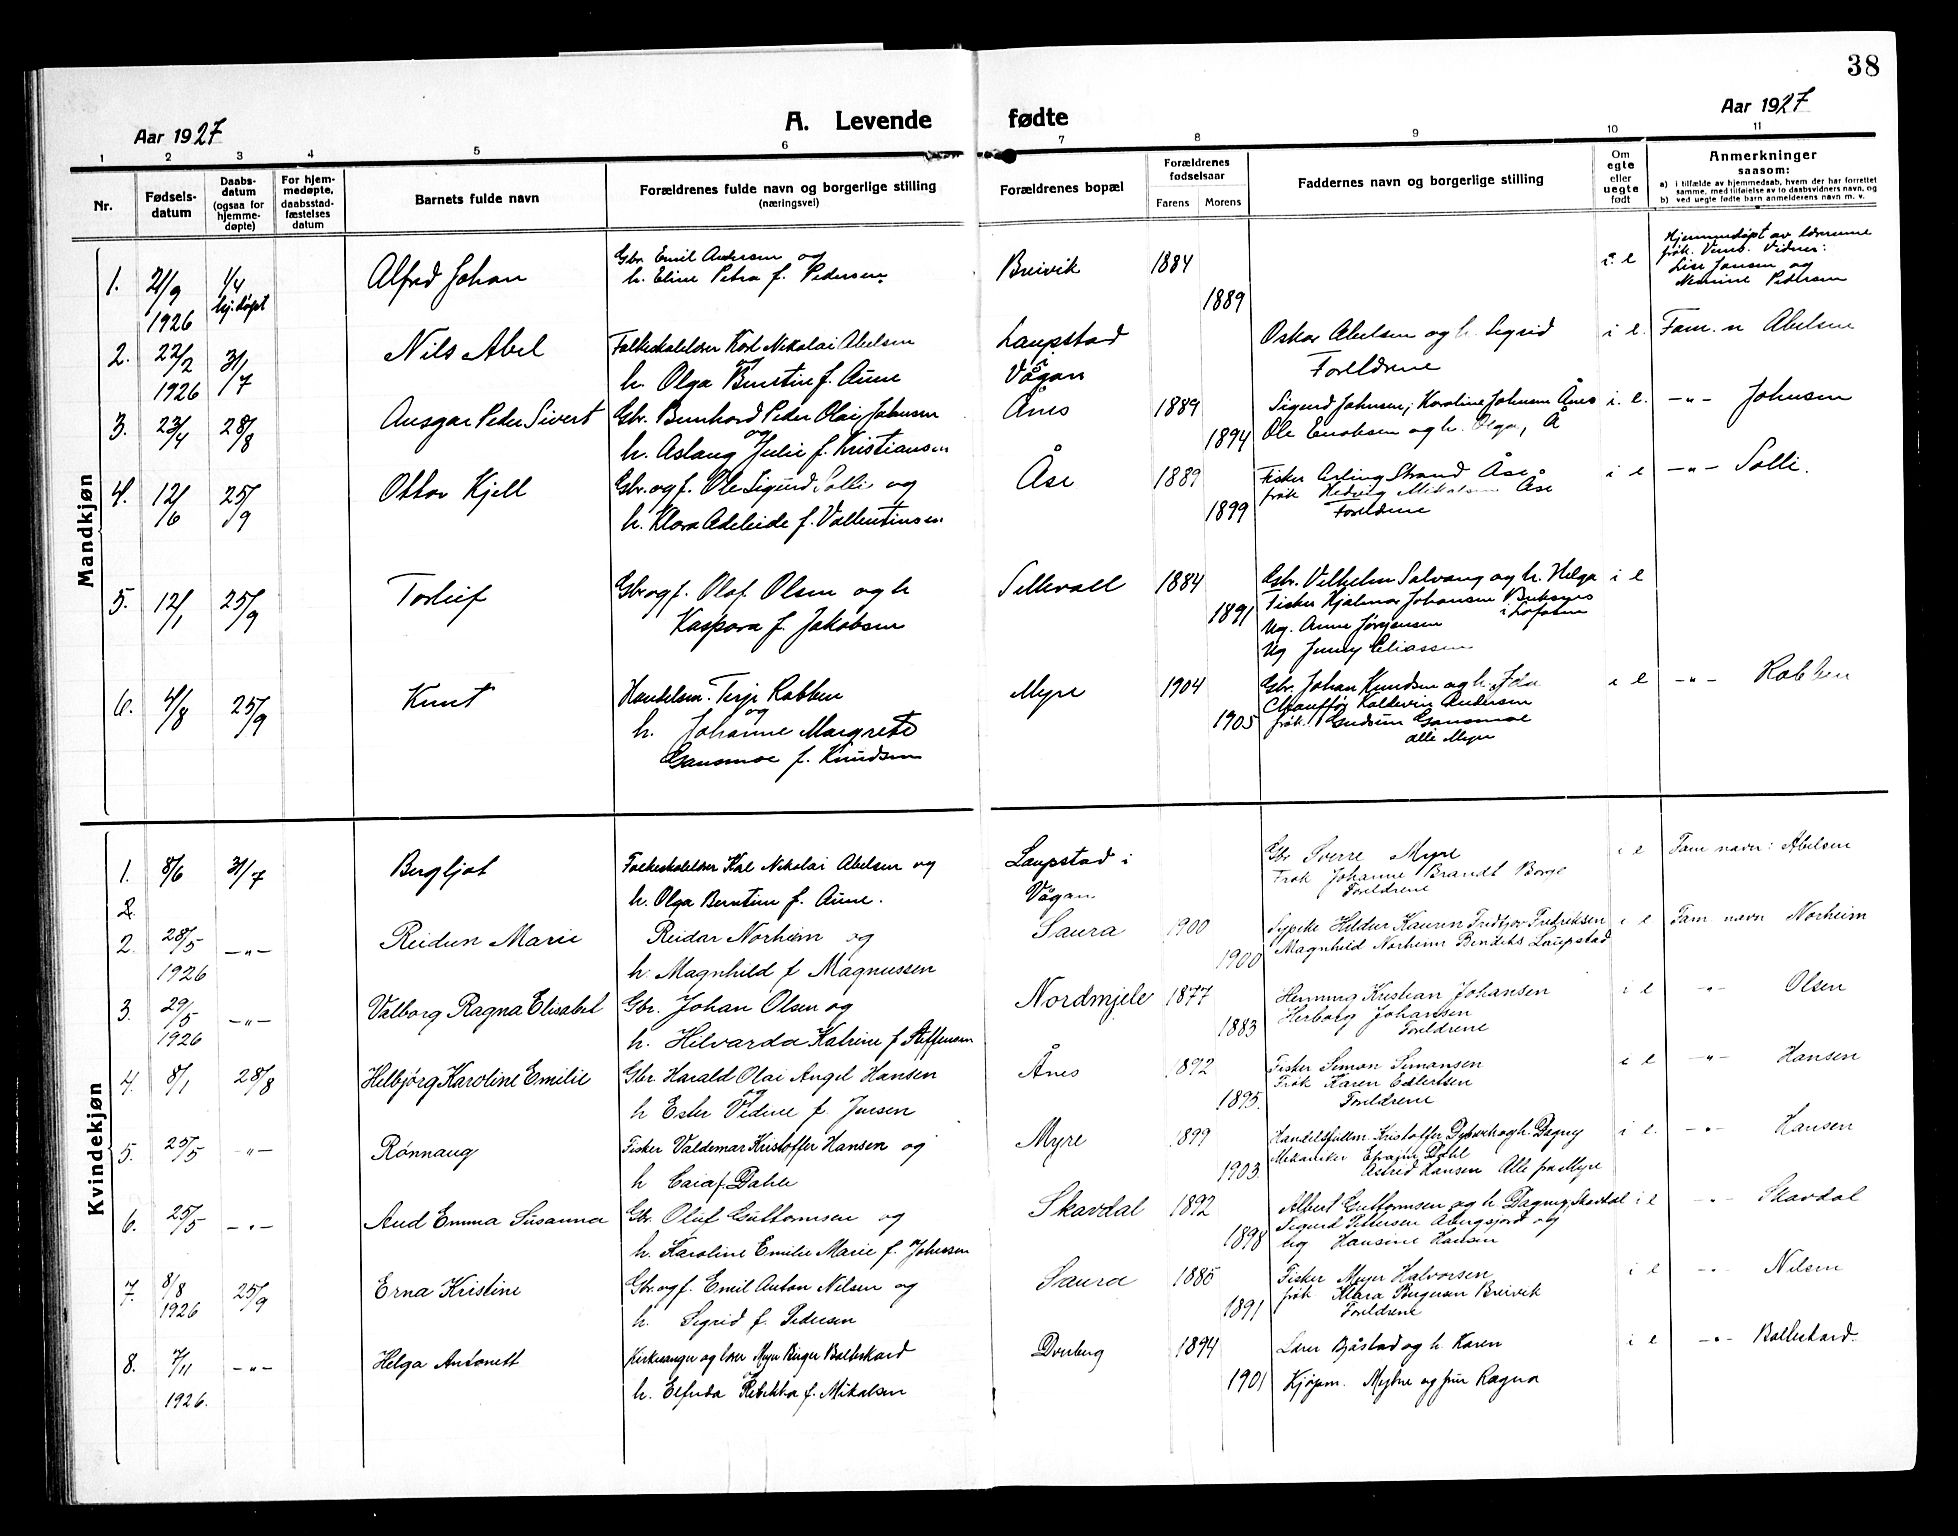 38
Aar 1927
A. Levende fødte
Aar 1927
1 2 3 4 5 6 7 8 9 10 11
Nr.
Fødsels-
datum
Daabs-
datum
(ogsaa for
hjemme-
døpte)
For hjem-
medøpte,
daabsstad-
fæstelses
datum
Barnets fulde navn
Forældrenes fulde navn og borgerlige stilling
(næringsvei)
Forældrenes bopæl
Forældrenes
fødselsaar
Farens Morens
Faddernes navn og borgerlig stilling
Om
egte
eller
uegte
født
Anmerkninger
saasom:
a) i tilfælde av hjemmedaab, hvem der har forrettet
samme, med tilføielse av to daabsvidners navn, og
b) ved uegte fødte barn anmelderens navn m. v.
Mandkjøn
1. 21/9 1926 1/4 hj. døpt
Alfred Johan
Gbr. Emil Andersen og
h. Eline Petra f. Pedersen.
Breivik
1884
1889
i. e
Hjemmedøpt av lærerinne
frøk. Vidner:
Lise Jensen og
Pedersen
2. 22/2 1926 31/7
Nils Abel
Folkeskolelærer Karl Nikolai Abelsen
og
h. Olga Berntine f. Aune
Laupstad
i
Vågan
Oskar Abelsen og h. Sigrid
Foreldrene
i e.
Fam. n Abelsen
3. 23/4 28/8
Ansgar Peder Sivert
Gbr. Bernhard Peder Olai Johnsen
og
h. Aslaug Julie f. Kristiansen
Ånes
1889
1894
Sigurd Johnsen, Karoline Johnsen Ånes
Ole Enoksen og h. Olga, Å
i. e.
-"- Johnsen
4. 12/6 25/9
Ottar Kjell
Gbr. og f. Ole Sigurd Solli og
h. Klara Adeleide f. Vallentinsen
Åse
1889
1899
Fisker Erling Strand Åse
frøk Hedvig Mikalsen Åse
Foreldrene
i e
-"- Solli.
5. 12/1 25/9
Torleif
Gbr og f. Olaf Olsen og h
Kaspara f. Jakobsen
Sellevoll
1884
1891
Gbr. Vilhelm Solvang og h. Helga
Fisker Hjalmar Johansen Buksnes
i Lofoten
Ug. Anne Jørgensen
Ug Jenny Eliassen
i e
6. 4/8 25/9
Knut
Handelsm. Terje Robben
og
h. Johanne Margrete
Gansmoe f. Knudsen
Myre
1904
1905
Gbr. Johan Knudsen og h. Ida
Chauffør Kaldevin Andersen
frøk. Gudrun Gansmoe
alle Myre
i e
-"- Robben
Kvindekjøn
1. 8/6 31/7
Bergljot
Folkeskolelærer Karl Nikolai Abelsen og
h. Olga Berntine f. Aune.
Laupstad i
Vågan
Gbr Sverre Myre
Frøk Johanne Brandt Borge
Foreldrene
i e
Fam navn: Abelsen
2.
2. 28/5 1926 -"-
Reidun Marie
Reidar Norheim og
h. Magnhild f Magnussen
Saura
1900
1900
Sypike Hildur Fridtjov Fredriksen
Magnhild Norheim Laupstad
i e
Fam navn Norheim
3. 29/5 1926 -"-
Valborg Ragna Elisabet
Gbr. Johan Olsen og
h. Hilvarda Katrine f Steffensen
Nordmjele
1877
1883
Henning Kristian Johansen
Herborg Johansen
Foreldrene
i e
-"- Olsen
4. 8/1 28/8
Helbjørg Karoline Emilie
Gbr Harald Olai Angel Hansen
og
h Ester Vedine f. Jensen
Ånes
1892
1895.
Fisker Simon Simonsen
Frøk Karen Edlertsen
Foreldrene
i e
-"- Hansen
5. 25/5 -"-
Rønnaug
Fisker Valdemar Kristoffer Hansen og
h Caia f. Dahle
Myre
1899
1903.
Handelsfullm. Kristoffer og h. Dagny
Mekaniker Efraim Dahl
Astrid Hansen Alle fra Myre
i e.
-"- Hansen
6. 25/5 -"-
Aud Emma Susanna
Gbr. Oluf Guttormsen og
h. Karoline Emilie Marie f. Johnsen
Skavdal
1892
1898
Albert Guttormsen og h Dagny, Skavdal
Sigurd Pettersen og
ug Hansine Hansen
i e
-"- Skavdal
7. 8/8 1926 25/9
Erna Kristine
Gbr. og f. Emil Anton Nilsen og
h. Sigrid f. Pedersen
Saura
1885
1891
Fisker Meyer Halvorsen
frøk Klara Børgesen Breivik
Foreldrene
i e
-"- Nilsen
8. 7/11 1926. -"-
Helga Antonett
Kirkesanger og lærer Meyer Birger Balleskard
og
h. Elfrida Rebekka f. Mikalsen
Dverberg
1894
1901
Lærer Bjåstad og h. Karen
Kjøpm. Myhre og fru Ragna
i e
-"- Balleskard.